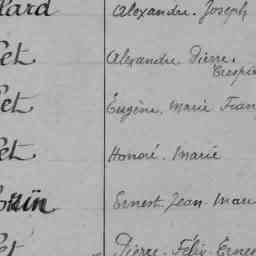 lard Alexandre. Joseph
let Alexandre Pierre.
Crespin
let Eugène. Marie Fran
let Honoré. Marie
Ernest. Jean. Mari
let Pierre. Félix. Ernes